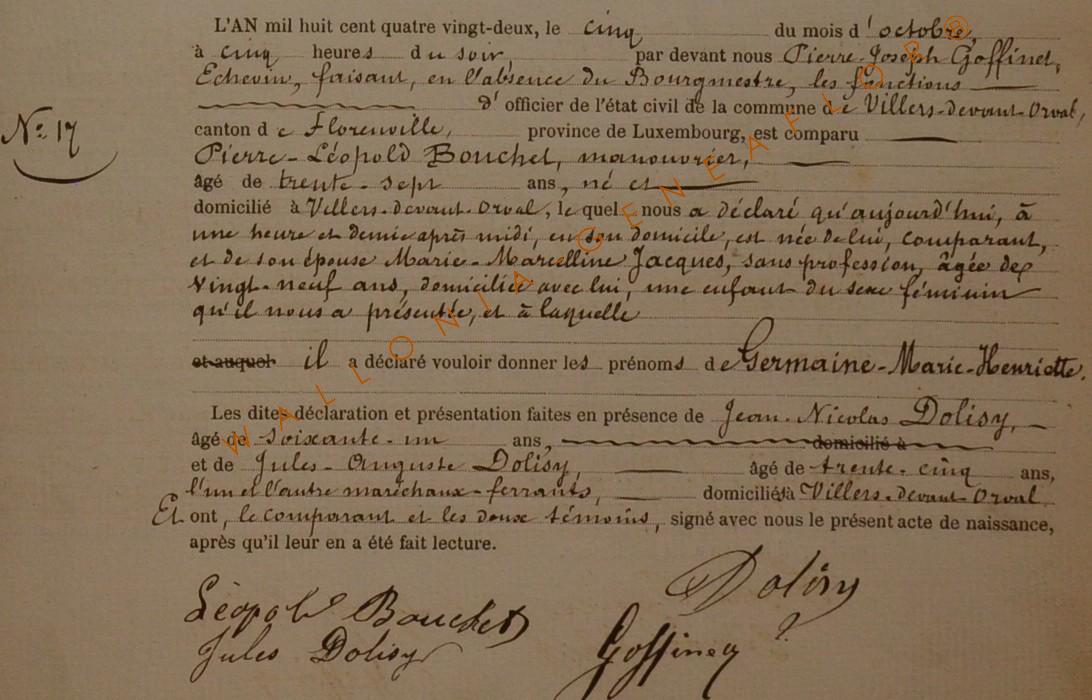 L'AN mil huit cent quatre vingt-deux, le cinq du mois d'octobre,
à cinq heures du soir, par devant nous Pierre-Joseph Goffinet,
Echevin, faisant, en l'absence du Bourgmestre, les fonctions
d'officier de l'état civil de la commune de Villers-devant-Orval,
N° 17
canton de Florenville, province de Luxembourg, est comparu
Pierre-Léopold Bouchet, manouvrier,
âgé de trente-sept ans, né et
domicilié à Villers-devant-Orval, lequel nous a déclaré qu'aujourd'hui, à
une heure et demie après midi, en son domicile, est née de lui, comparant,
et de son épouse Marie-Marcelline Jacques, sans profession, âgée de
vingt-neuf ans, domiciliée avec lui, une enfant du sexe féminin
qu'il nous a présentée, et à laquelle
et auquel il a déclaré vouloir donner les prénoms de Germaine-Marie-Henriette.
Les dites déclaration et présentation faites en présence de Jean-Nicolas Dolisy,
âgé de soixante-un ans, domicilié à
et de Jules-Auguste Dolisy, âgé de trente-cinq ans,
l'un et l'autre maréchaux-ferrants, domiciliés à Villers-devant-Orval
Et ont, le comparant et les deux témoins, signé avec nous le présent acte de naissance,
après qu'il leur en a été fait lecture.
Léopold Bouchet Dolisy
Jules Dolisy Goffinet
WALLONIA GENEA FLOBB